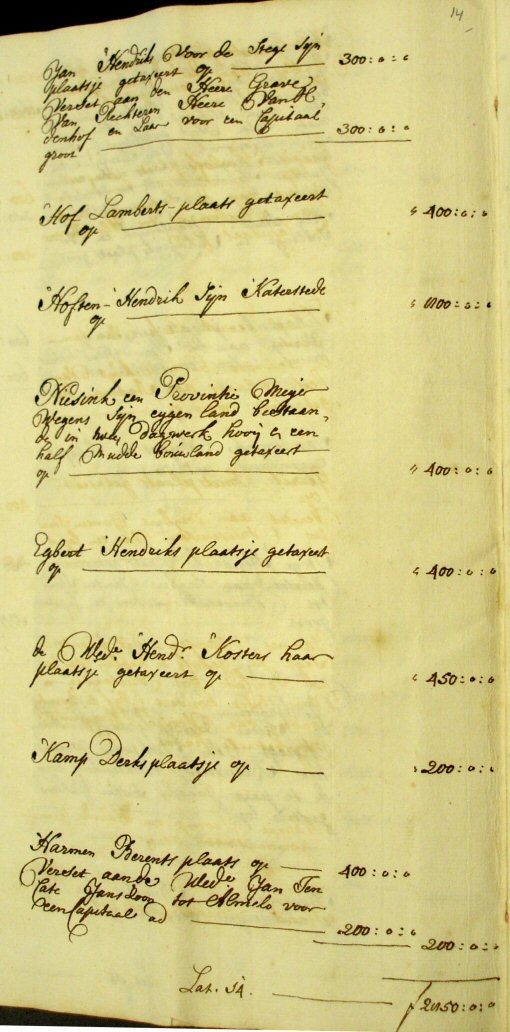 14
Jan Hendriks Voor de Stege Sijn
plaatsje getaxeert op 300:0:0
Verset aan den Heere Grave
Van Rechteren Heere Van
en Laar voor een Capitaal
groot 300:0:0
Hof Lamberts plaats getaxeert
op " 400:0:0
Hoften Hendrik Sijn Katerstede
op " 100:0:0
Niesink een Provintie Meijer
Wegens Sijn eygen land bestaan,
de in twee Dagwerk hooij en een
half Mudde bouwland getaxeert
op " 400:0:0
Egbert Hendriks plaatsje getaxeert
op " 400:0:0
de Wede. Hendr. Kosters haar
plaatsje getaxeert op " 450:0:0
Kamp Derks plaatsje op " 200:0:0
Harmen Berents plaats op 400:0:0
Verset aan de Wede Jan Ten
Cate Jans Zoon tot Almelo voor
een Capitaal ad 200:0:0 200:0:0
Lat. 14. f 2150:0:0